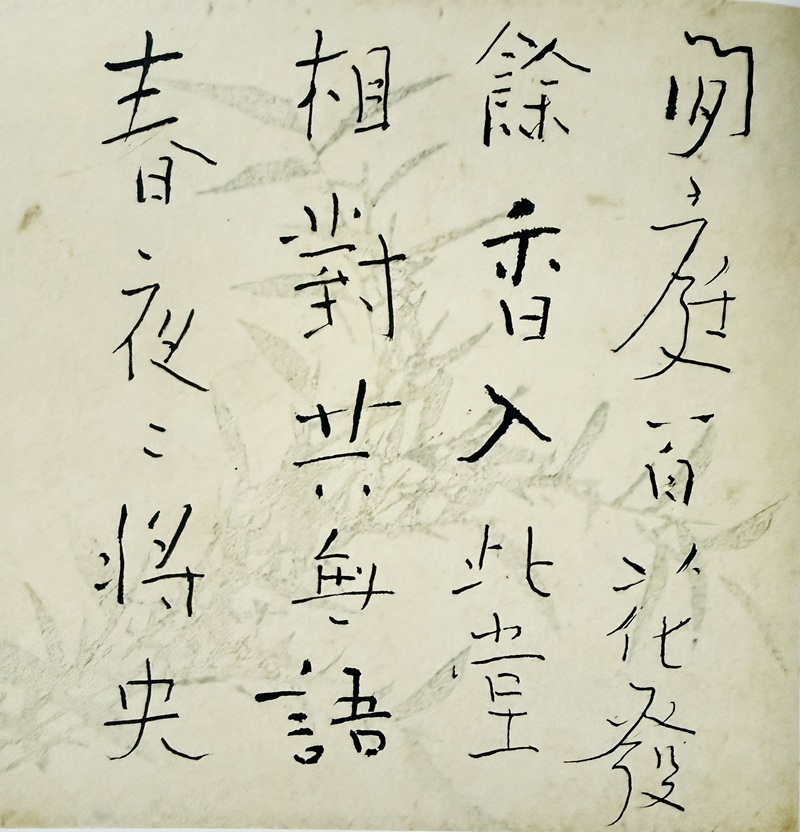 閒庭百花發
餘香入此堂
相對共無語
春夜々將央